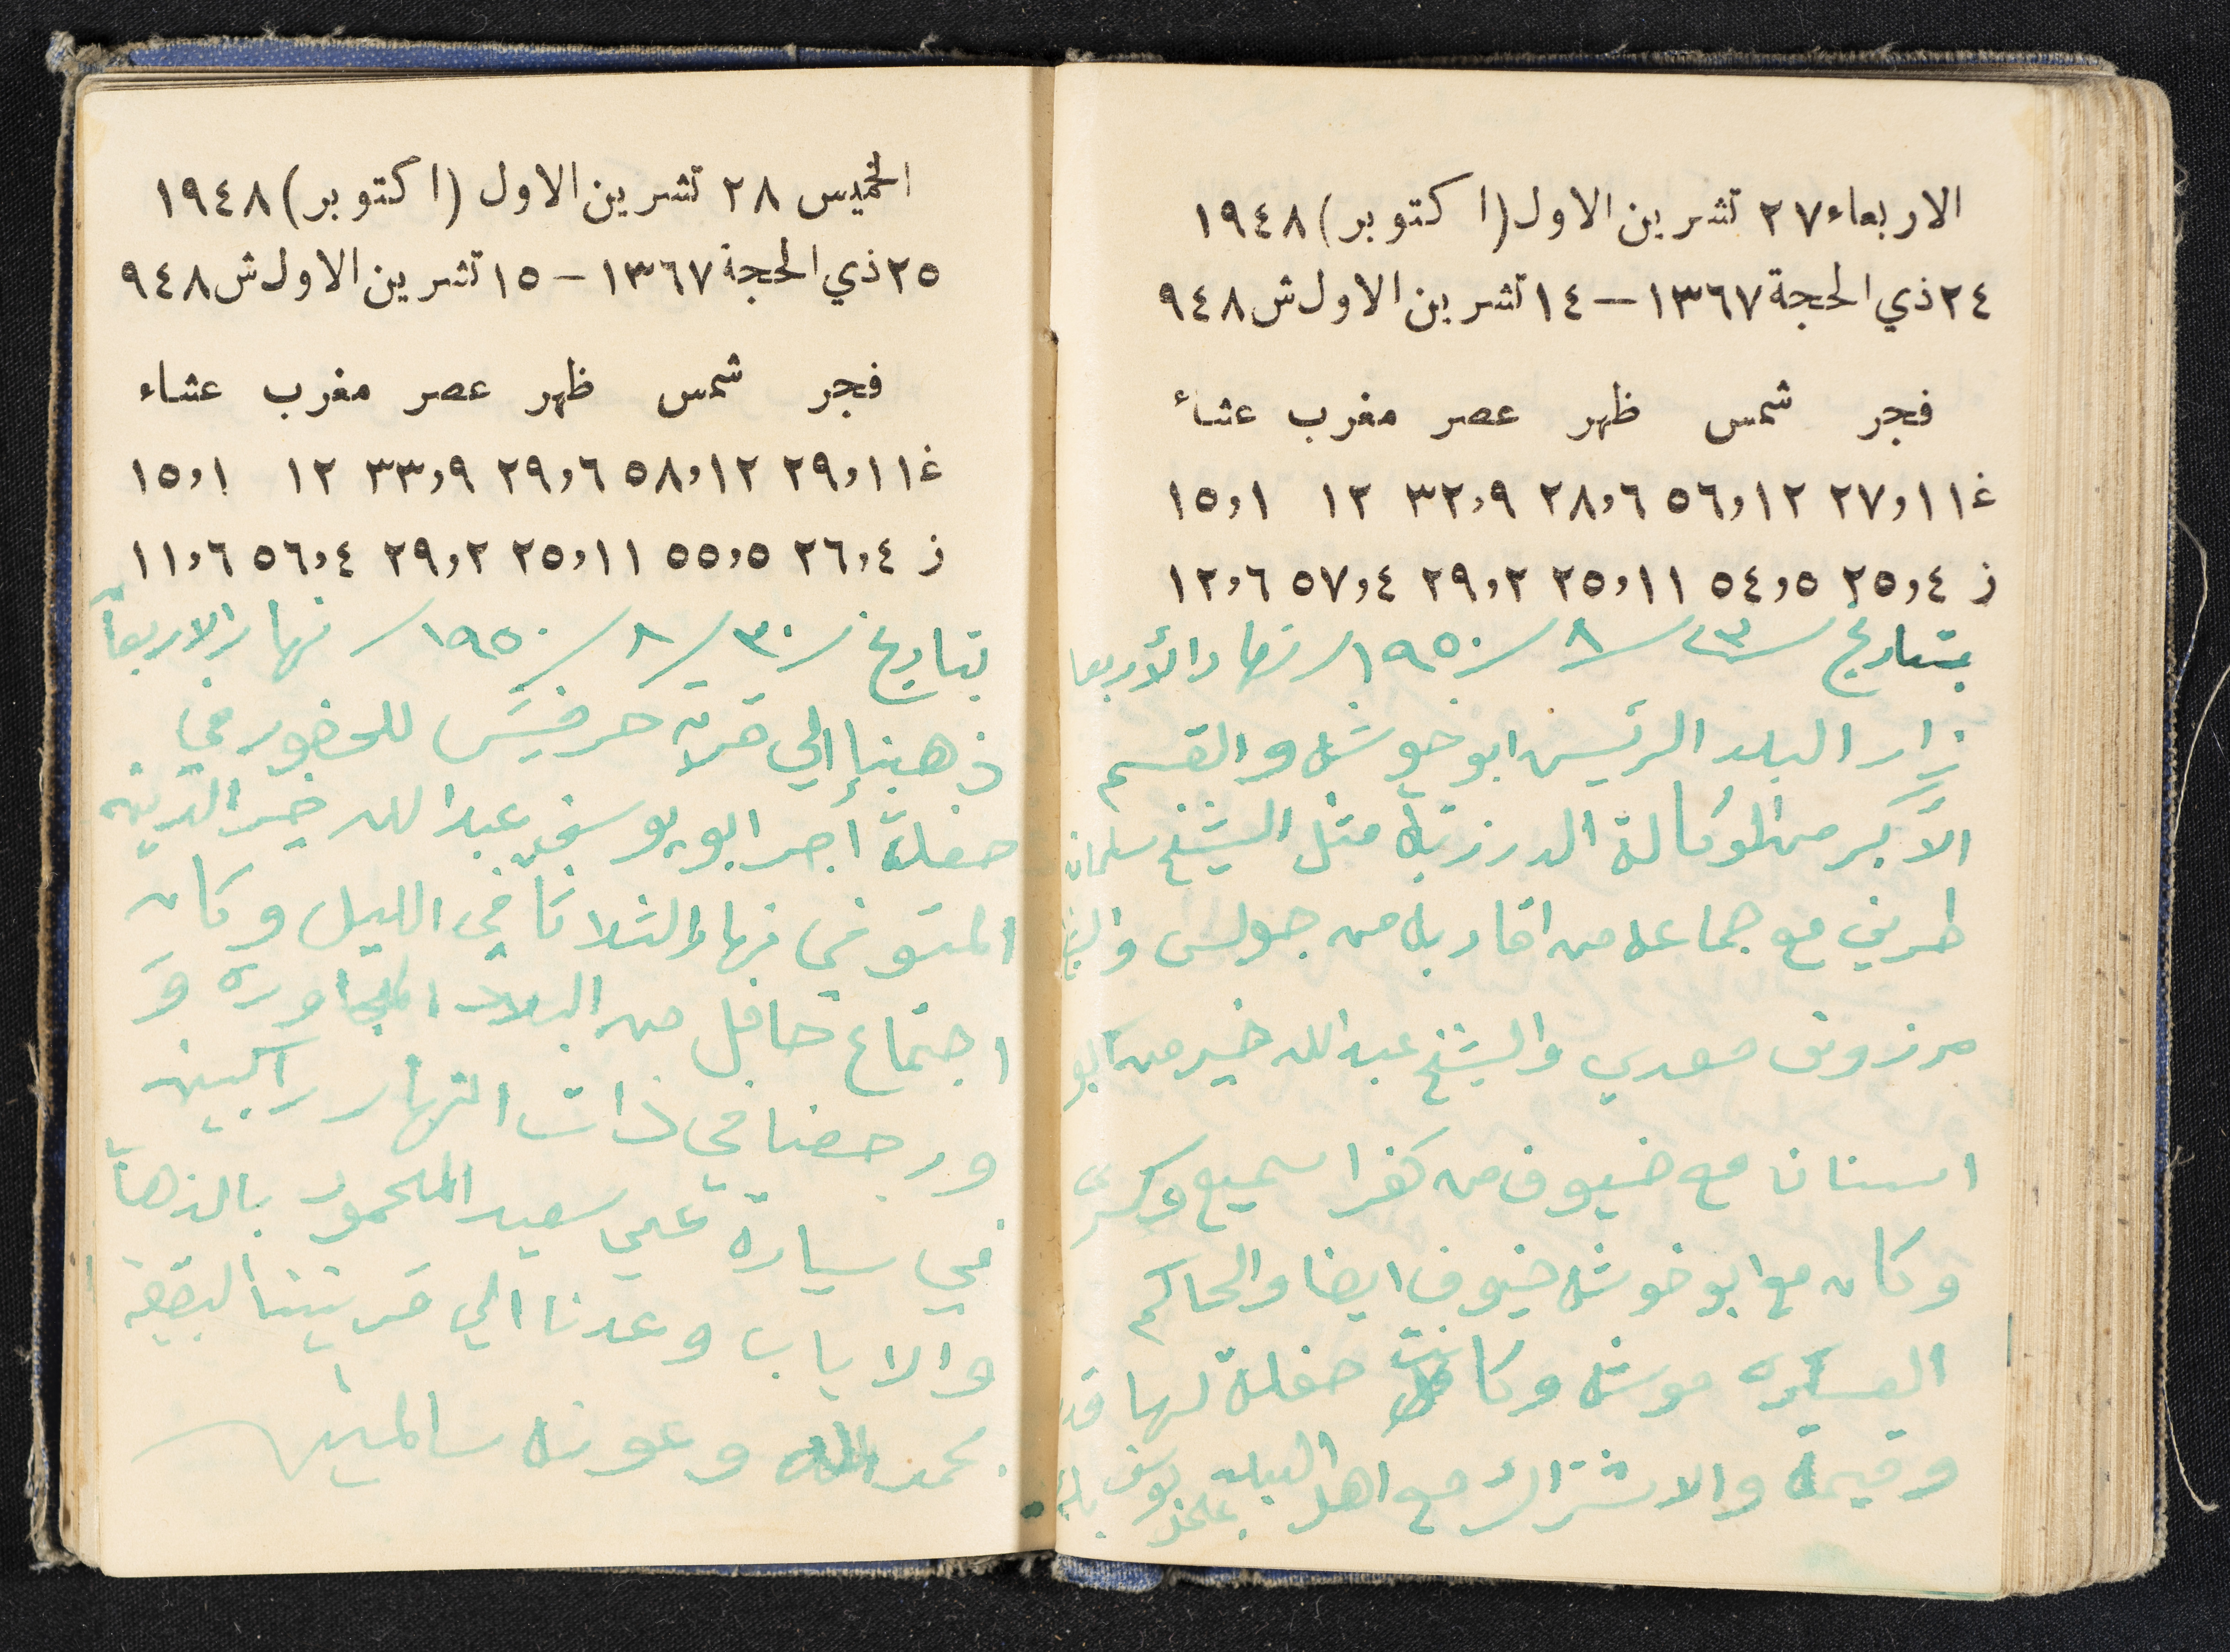 الاربعاء ٢٧ تشرين الاول (اكتوبر) ١٩٤٨
٢٤ ذي الحجة ١٣٦٧ – ١٤ تشرين الاول ش ٩٤٨
فجر شمس ظهر عصر مغرب عشاء
غ ٢٧,١١ ٥٦,١٢ ٢٨,٦ ٣٢,٩ ١٢ ١٥,١
ز ٢٥,٤ ٥٤,٥ ٢٥,١١ ٢٩,٢ ٥٧,٤ ١٢,٦
بتاريخ / ٢٣ / ٨ / ١٩٥٠ / نهار الأربعا
زار البلد الرئيس ابو خوشي والقسم
الأكبر من الوكالة الدرزية مثل الشيخ سلمان
طريف مع جماعه من اقاربه من جولس
مرزوق معدي والشيخ عبدالله خير من ابو
اسنان مع ضيوف من كفرا سميع وكسرى
وكان مع ابو خوشي ضيوف ايضا والحاكم
العسكري موشي وكانت حفلة لها قدر
وقيمة والاشتراك مع اهل البلد يوسف
الخميس ٢٨ تشرين الاول (اكتوبر) ١٩٤٨
٢٥ ذي الحجة ١٣٦٧ – ١٥ تشرين الاول ش ٩٤٨
فجر شمس ظهر عصر مغرب عشاء
غ ٢٩,١١ ٥٨,١٢ ٢٩,٦ ٣٣,٩ ١٢ ١٥,١
ز ٢٦,٤ ٥٥,٥ ٢٥,١١ ٢٩,٢ ٥٦,٤ ١١,٦
بتاريخ / ٣٠ / ٨ / ١٩٥٠ / نهار الاربعاً
ذهبنا إلي قرية حرفيش للحضور في
حفلة أجر ابو يوسف عبدالله خير الدين
المتوفي نهار الثلاثا في الليل وكان
اجتماع حافل من البلاد المجاوره و
ورجعنا في ذات النهار راكبين
في سيارة علي سعيد المحمود بالذهاب
والاياب وعدنا الي قريتنا البقيعه
بحمد الله وعونه سالمين